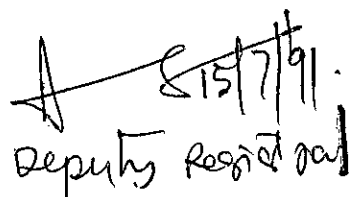 15/7/91.
Deputy Registrar